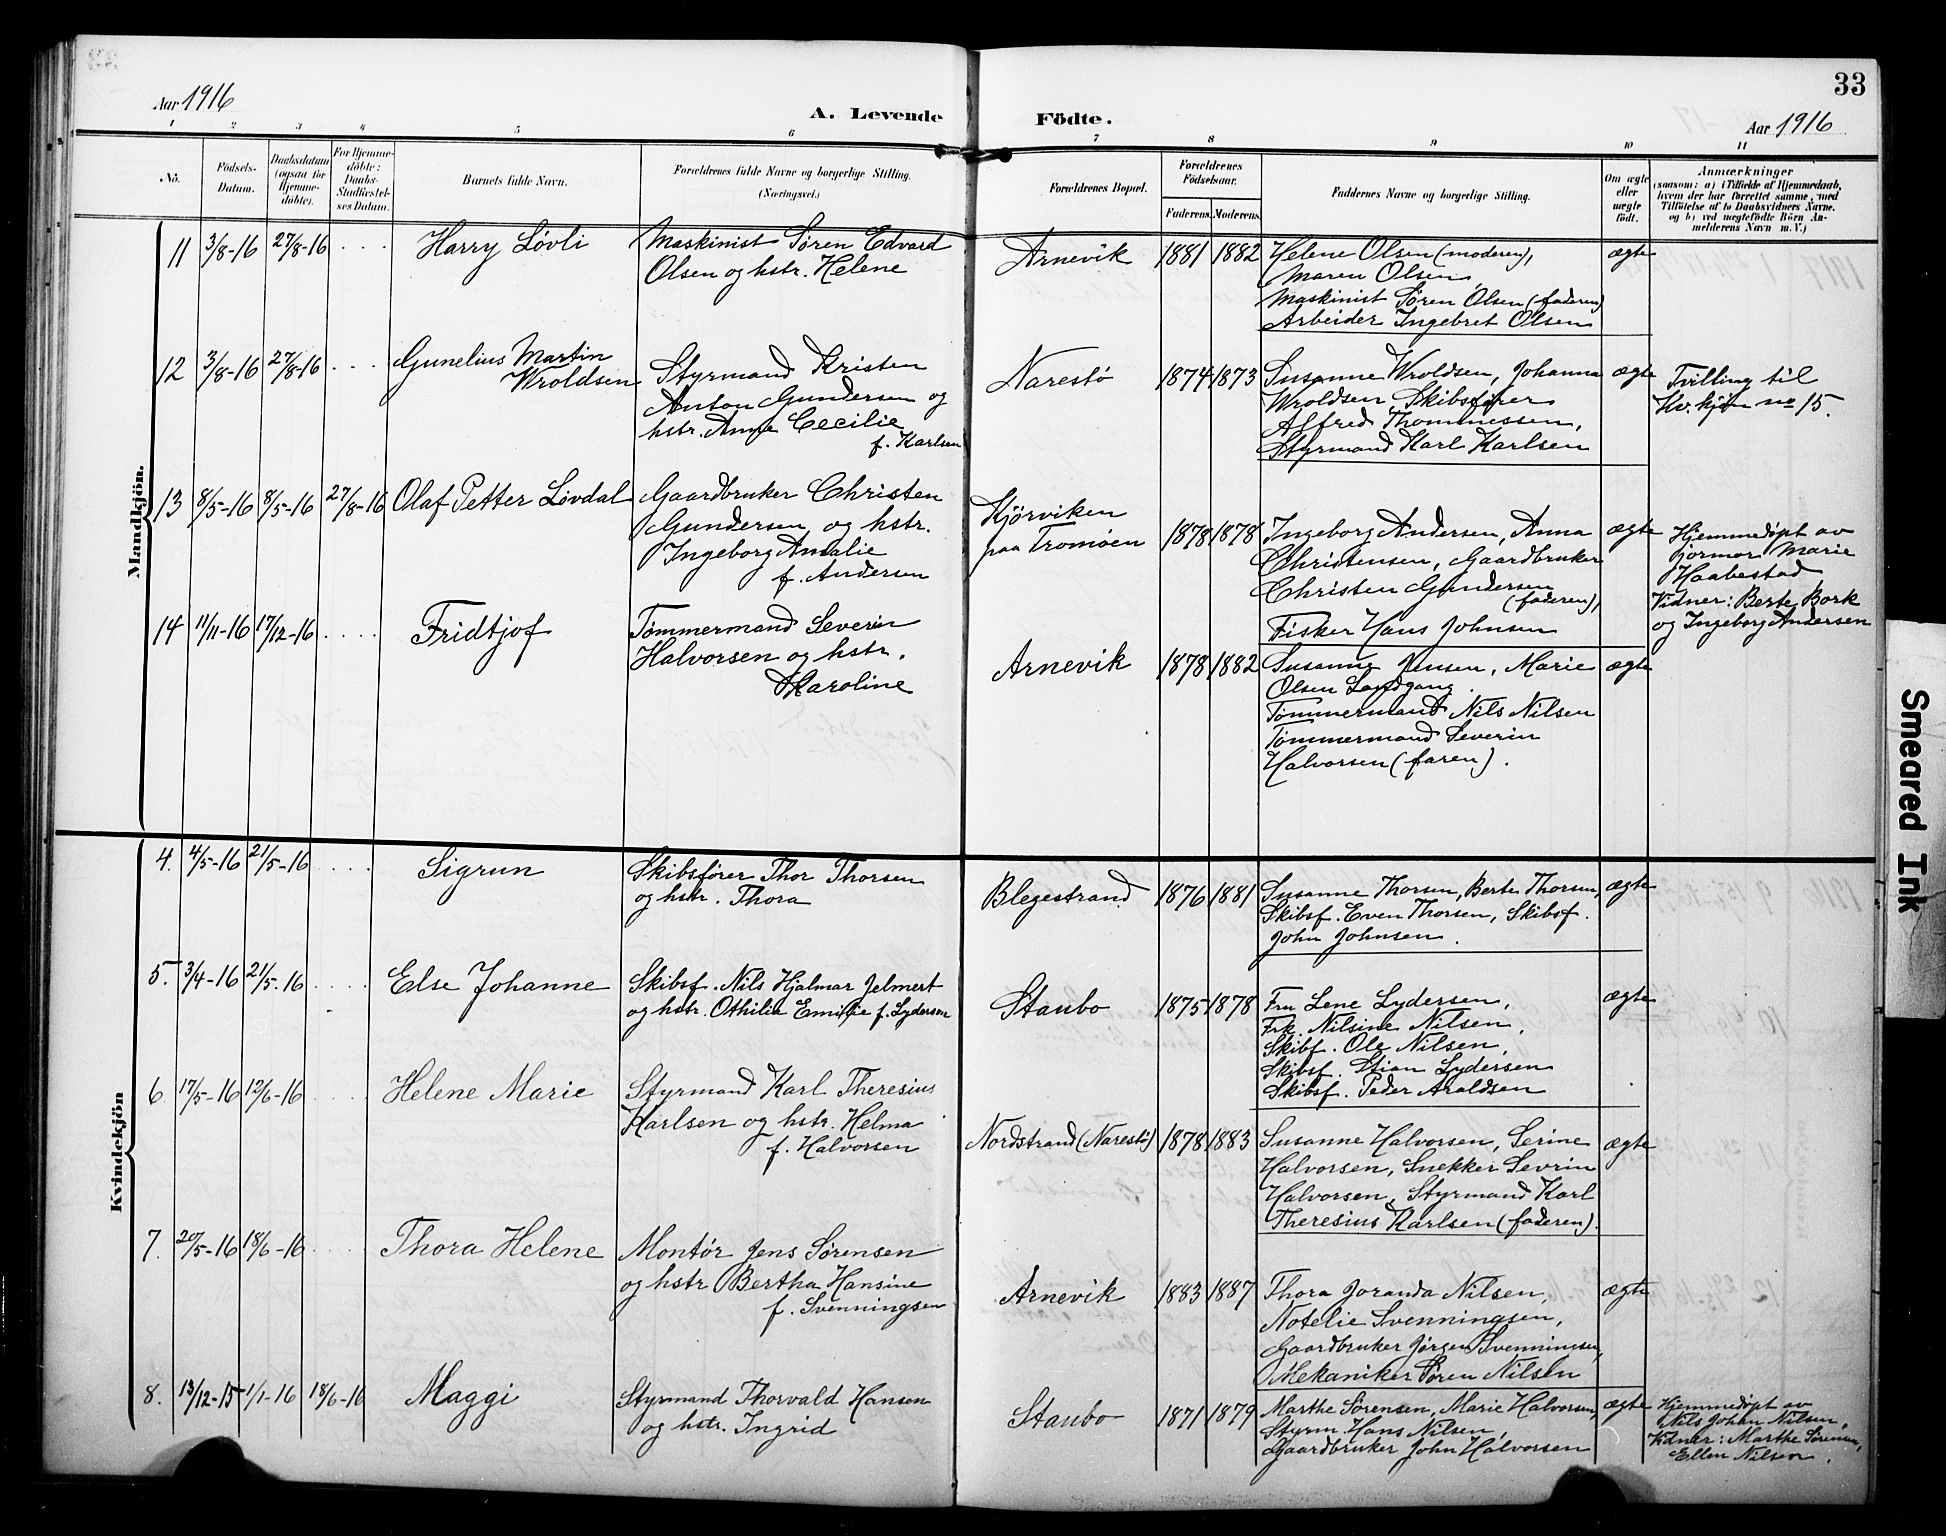 33
Aar 1916
A. Levende Födte.
Aar 1916
1 2 3 4 5 6 7 8 9 10 11
No.
Födsels-
Datum.
Daabsdatum
(ogsaa for
Hjemme-
döbte).
For Hjemme-
döbte:
Daabs-
Stadfæstel-
ses Datum.
Barnets fulde Navn.
Forældrenes fulde Navne og borgerlige Stilling.
(Næringsvei.)
Forældrenes Bopæl.
Forældrenes
Födselsaar.
Faderens. Moderens.
Faddernes Navne og borgerlige Stilling.
Om ægte
eller
uægte
födt.
Anmærkninger
(saasom: a) i Tilfælde af Hjemmedaab,
hvem der har forrettet samme, med
Tilföielse af to Daabsvidners Navne.
og b) ved uægtefödte Börn An-
melderens Navn m. V.)
Mandkjön.
11 3/8-16 27/8-16 . . . Harry Løvli
Maskinist Søren Edvard
Olsen og hstr. Helene
Arnevik 1881 1882
Helene Olsen (moderen),
Maren Olsen,
Maskinist Søren Olsen (faderen)
Arbeider Ingebret Olsen
ægte
12 3/8-16 27/8-16 . . . Gunelius Martin
Wroldsen
Styrmand Kristen
Anton Gundersen og
hstr. Anne Cecilie
f. Karlsen
Narestø 1874 1873
Susanne Wroldsen, Johanna
Wroldsen Skibsfører
Alfred Thommessen,
Styrmand Karl Karlsen
ægte
Tvilling til
Kv. kjøn no 15.
13 8/5-16 8/5-16 27/8-16 Olaf Petter Løvdal
Gaardbruker Christen
Gundersen og hstr.
Ingeborg Amalie
f. Andersen
Kjørviken
paa Tromøen 1878 1878
Ingeborg Andersen, Anna
Christensen, Gaardbruker
Christen Gundersen
(faderen),
Fisker Hans Johnsen
ægte
Hjemmedøpt av
jormor Marie
Haabestad
Vidner: Berte Bork
og Ingeborg Andersen
14 11/11-16 17/12-16 . . . . Fridtjof
Tømmermand Severin
Halvorsen og hstr.
Karoline
Arnevik 1878 1882
Susanne Jensen, Marie
Olsen Landgang.
Tømmermand Nils Nilsen
Tømmermand Severin
Halvorsen (faren).
ægte
Kvindekjön
4. 4/5-16 21/5-16 . . . . Sigrun
Skibsfører Thor Thorsen
og hstr. Thora
Blegestrand 1876 1881
Susanne Thorsen, Berte Thorsen,
Skibsf. Even Thorsen, Skibsf.
John Johnsen.
ægte
5. 3/4-16 21/5-16 . . . . Else Johanne
Skibsf. Nils Hjalmar Jelmert
og hstr. Othilia Emilie f. Lydersen
Staubo 1875 1878
Fru Lene Lydersen,
Frk. Nilsine Nilsen,
Skibf. Ole Nilsen,
Skibsf. Stian Lydersen
Skibsf. Peder Araldsen
ægte
6. 17/5-16 12/6-16 . . . . Helene Marie
Styrmand Karl Theresius
Karlsen og hstr. Helma
f. Halvorsen
Nordstrand (Narestø) 1878 1883
Susanne Halvorsen, Serine
Halvorsen, Snekker Sevrin
Halvorsen, Styrmand Karl
Theresius Karlsen (faderen).
ægte
7. 20/5-16 18/6-16 . . . . Thora Helene
Montør Jens Sørensen
og hstr Bertha Hansine
f. Svenningsen
Arnevik 1883 1887
Thora Joranda Nilsen,
Notelie Svenningsen,
Gaardbruker Jørgen Svenningsen,
Mekaniker Søren Nilsen
ægte
8. 13/12-15 1/1-16 18/6-16 Maggi
Styrmand Thorvald Hansen
og hstr. Ingrid
Staubo 1871 1879
Marthe Sørensen, Marie Halvorsen,
Styrm. Hans Nilsen,
Gaardbruker John Halvorsen
ægte
Hjemmedøpt av
Nils Johan Nilsen.
Vidner: Marthe Sørensen,
Ellen Nilsen.
Smeared Ink